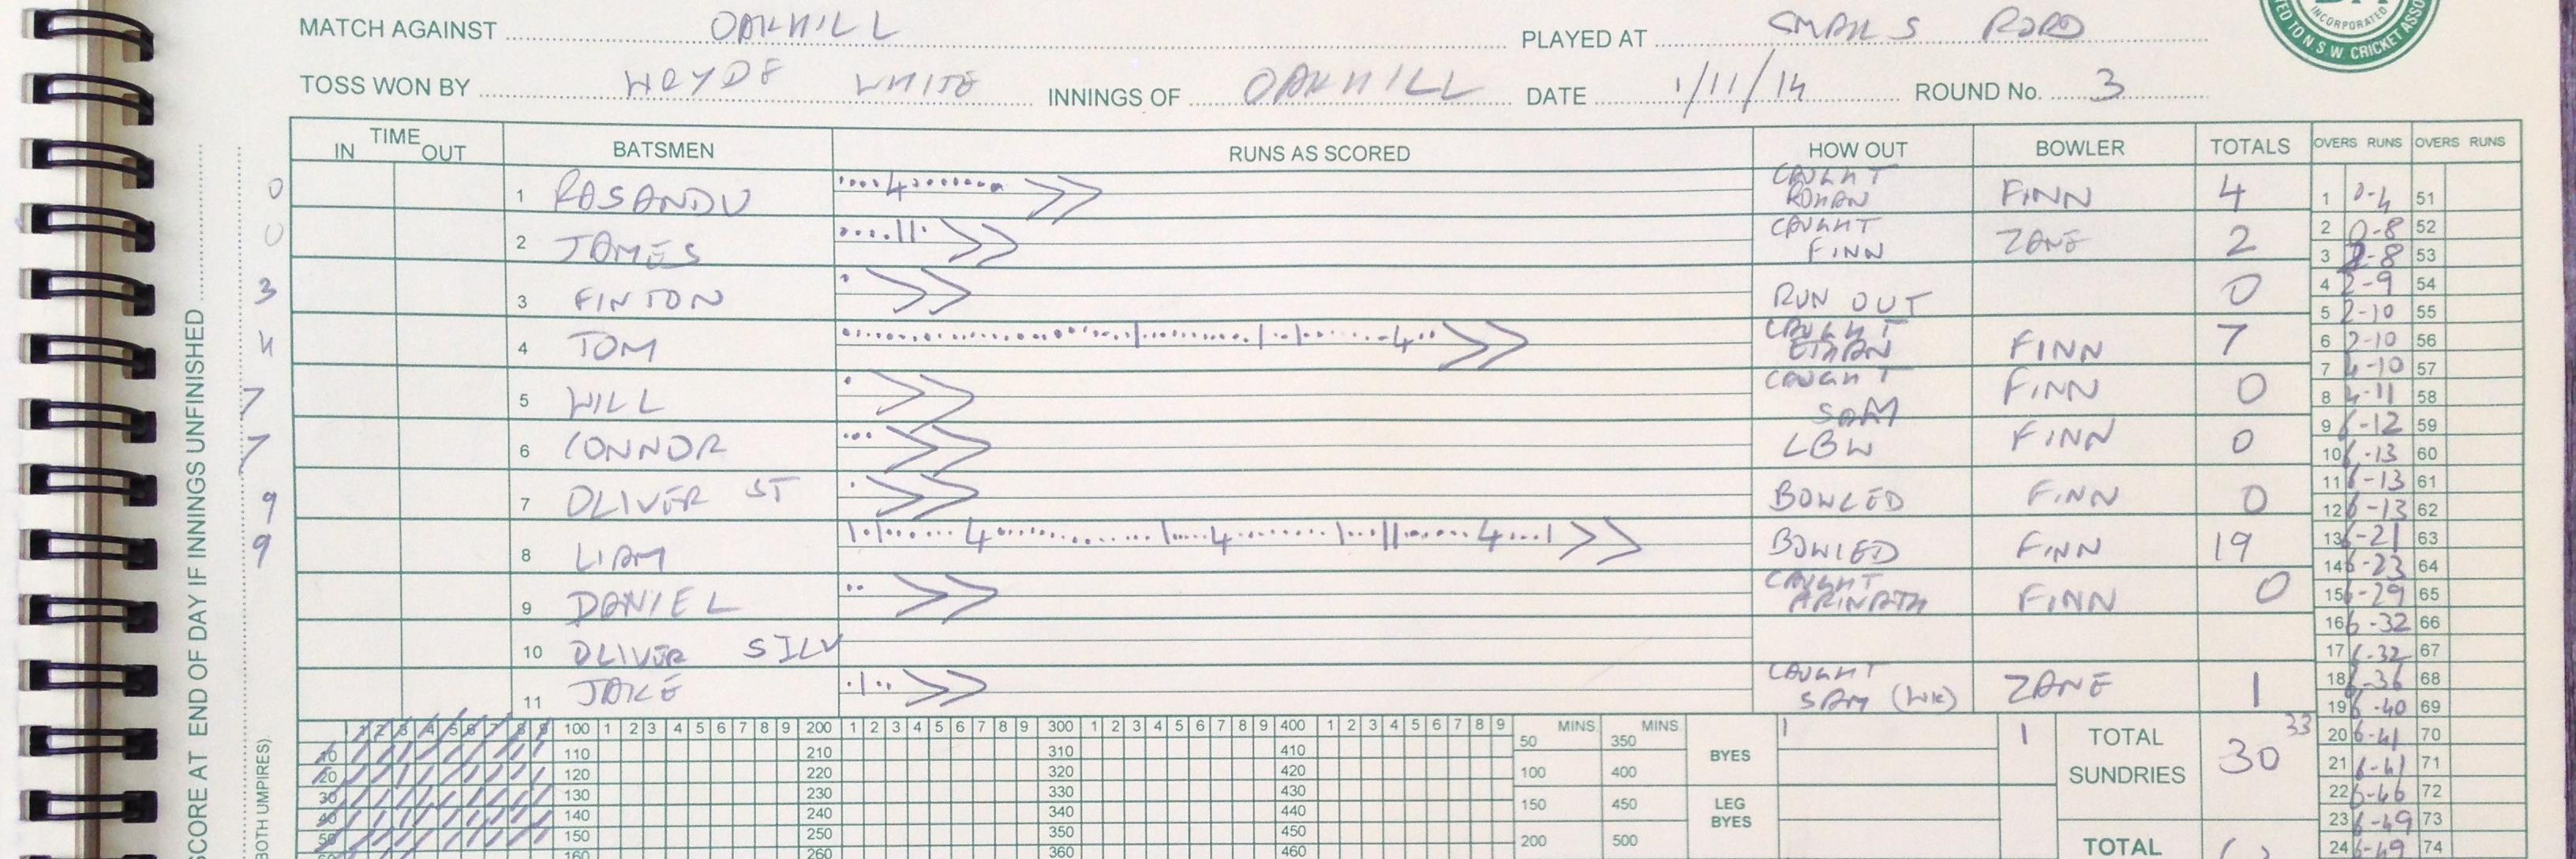 MATCH AGAINST OAKHILL PLAYED AT SMALLS ROAD
INCORPORATED
TED TO N.S.W. CRICKET ASSO
TOSS WON BY WHITE INNINGS OF OAKHILL DATE 1/11/14 ROUND No. 3
TIME
IN OUT BATSMEN RUNS AS SCORED HOW OUT BOWLER TOTALS OVERS RUNS OVERS RUNS
0 1 RASANDU 4 CAUGHT ROHAN FINN 4 1 0-4 51
0 2 JAMES CAUGHT FINN ZANE 2 2 0-8 52
3 2-8 53
3 3 FINTON RUN OUT 0 4 2-9 54
5 2-10 55
4 4 TOM 4 CAUGHT ETHAN FINN 7 6 2-10 56
7 4-10 57
7 5 WILL CAUGHT SAM FINN 0 8 4-11 58
9 6-12 59
7 6 CONNOR LBW FINN 0 10 6-13 60
11 6-13 61
9 7 OLIVER ST BOWLED FINN 0 12 6-13 62
9 8 LIAM 4 4 4 BOWLED FINN 19 13 6-21 63
14 6-23 64
9 DANIEL CAUGHT FINN 0 15 6-29 65
16 6-32 66
10 OLIVER SILV 17 6-32 67
11 JAKE CAUGHT SAM (WK) ZANE 1 18 6-36 68
19 6-40 69
1 2 3 4 5 6 7 8 9 100 1 2 3 4 5 6 7 8 9 200 1 2 3 4 5 6 7 8 9 300 1 2 3 4 5 6 7 8 9 400 1 2 3 4 5 6 7 8 9 MINS MINS
10 110 210 310 410 50 350 BYES 1 1 TOTAL SUNDRIES 30 33 20 6-41 70
20 120 220 320 420 100 400 21 6-41 71
30 130 230 330 430 22 6-46 72
40 140 240 340 440 150 450 LEG BYES 23 6-49 73
50 150 250 350 450 200 500 TOTAL 24 6-49 74
160 260 360 460
SCORE AT END OF DAY IF INNINGS UNFINISHED
BOTH UMPIRES)